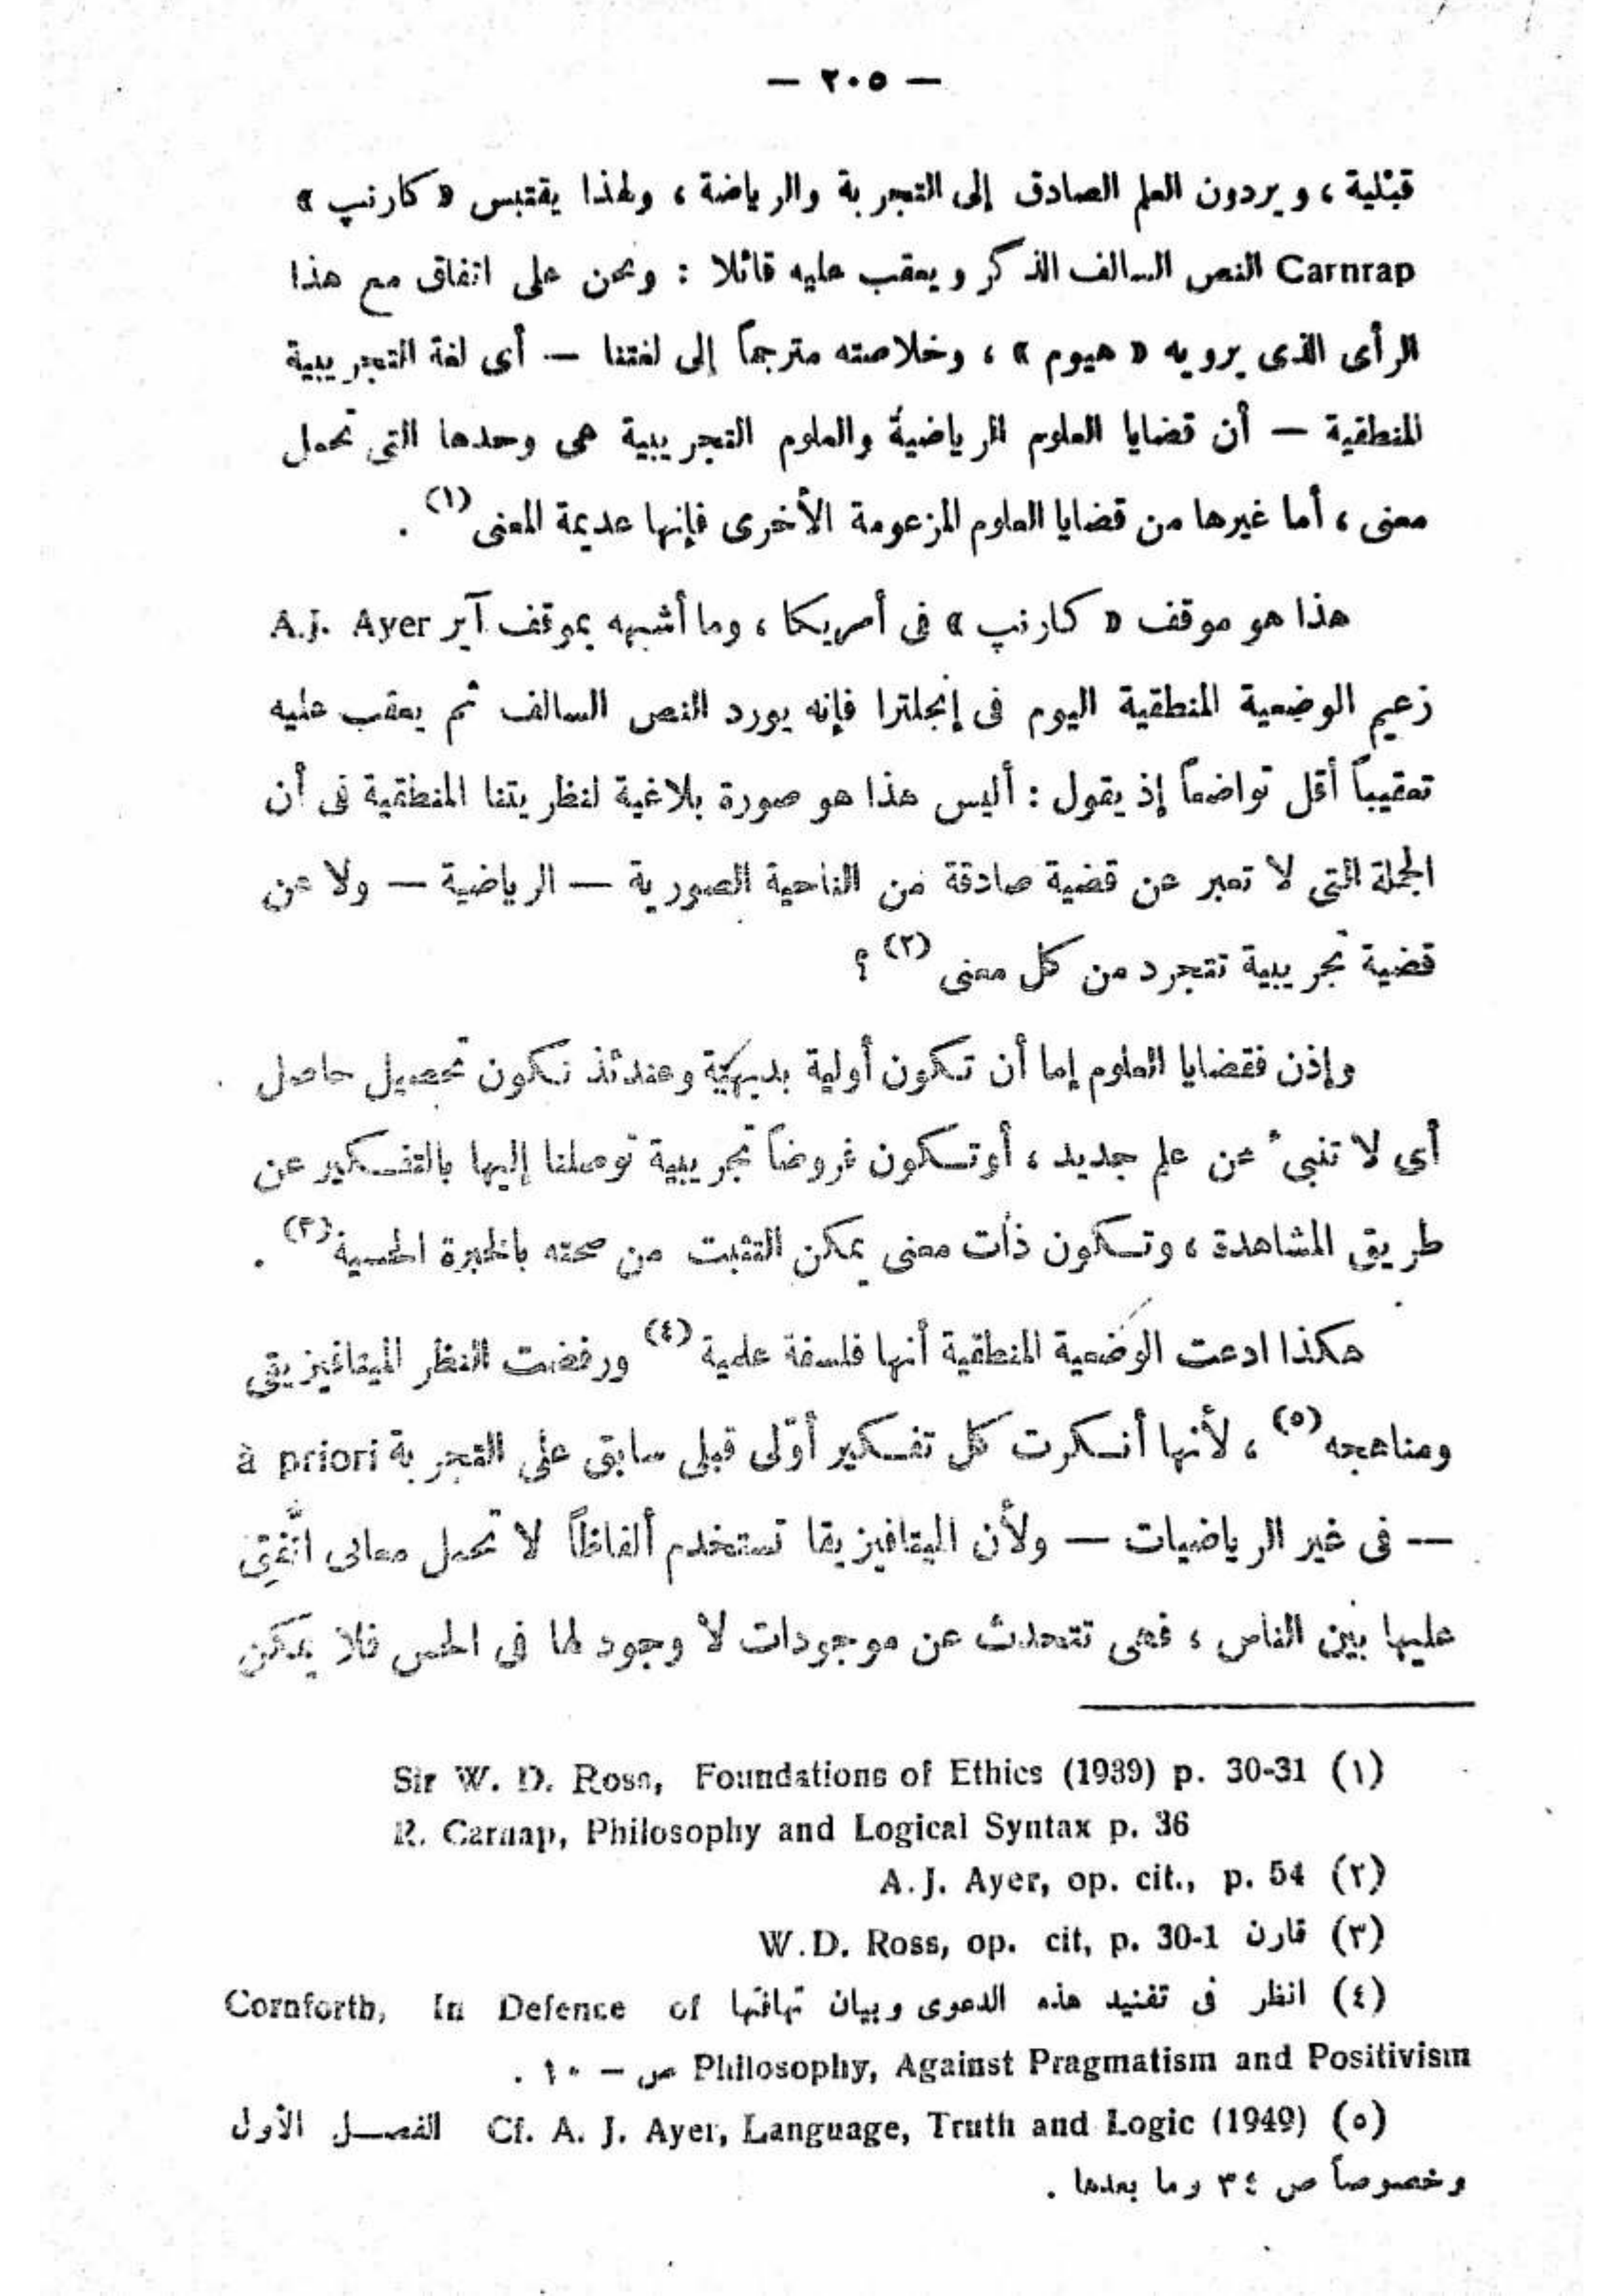 — ٢٠٥ —
قبْلية ، ويردون العلم الصادق إلى التجربة والرياضة ، ولهذا يقتبس « كارنپ »
Carnrap النص السالف الذكر ويعقب عليه قائلا : ونحن على اتفاق مع هذا
الرأى الذى يرويه « هيوم » ، وخلاصته مترجماً إلى لغتنا — أى لغة التجريبية
المنطقية — أن قضايا العلوم الرياضية والعلوم التجريبية هى وحدها التى تحمل
معنى ، أما غيرها من قضايا العلوم المزعومة الأخرى فإنها عديمة المعنى (١) .
هذا هو موقف « كارنپ » فى أمريكا ، وما أشبهه بموقف آير A.J. Ayer
زعيم الوضعية المنطقية اليوم فى إنجلترا فإنه يورد النص السالف ثم يعقب عليه
تعقيباً أقل تواضعاً إذ يقول : أليس هذا هو صورة بلاغية لنظريتنا المنطقية فى أن
الجملة التى لا تعبر عن قضية صادقة من الناحية الصورية — الرياضية — ولا عن
قضية تجريبية تتجرد من كل معنى (٢) ؟
وإذن فقضايا العلوم إما أن تكون أولية بديهيّة وعندئذ تكون تحصيل حاصل
أى لا تنبىء عن علم جديد ، أو تكون فروضاً تجريبية توصلنا إليها بالتفكير عن
طريق المشاهدة ، وتكون ذات معنى يمكن التثبت من صحته بالخبرة الحسية (٣) .
هكذا ادعت الوضعية المنطقية أنها فلسفة علمية (٤) ورفضت النظر الميتافيزيقى
ومناهجه (٥) ، لأنها أنكرت كل تفكير أوّلى قبلى سابق على التجربة à priori
— فى غير الرياضيات — ولأن الميتافيزيقا تستخدم ألفاظاً لا تحمل معانى اتُّفِق
عليها بين الناس ، فهى تتحدث عن موجودات لا وجود لها فى الحس فلا يمكن
(١) Sir W. D. Ross, Foundations of Ethics (1939) p. 30-31
R. Carnap, Philosophy and Logical Syntax p. 36
(٢) A.J. Ayer, op. cit., p. 54
(٣) قارن W.D. Ross, op. cit, p. 30-1
(٤) انظر فى تفنيد هذه الدعوى وبيان تهافتها Cornforth, In Defence of
Philosophy, Against Pragmatism and Positivism ص — ١٠ .
(٥) Cf. A. J. Ayer, Language, Truth and Logic (1949) الفصل الأول
وخصوصاً ص ٣٤ وما بعدها .